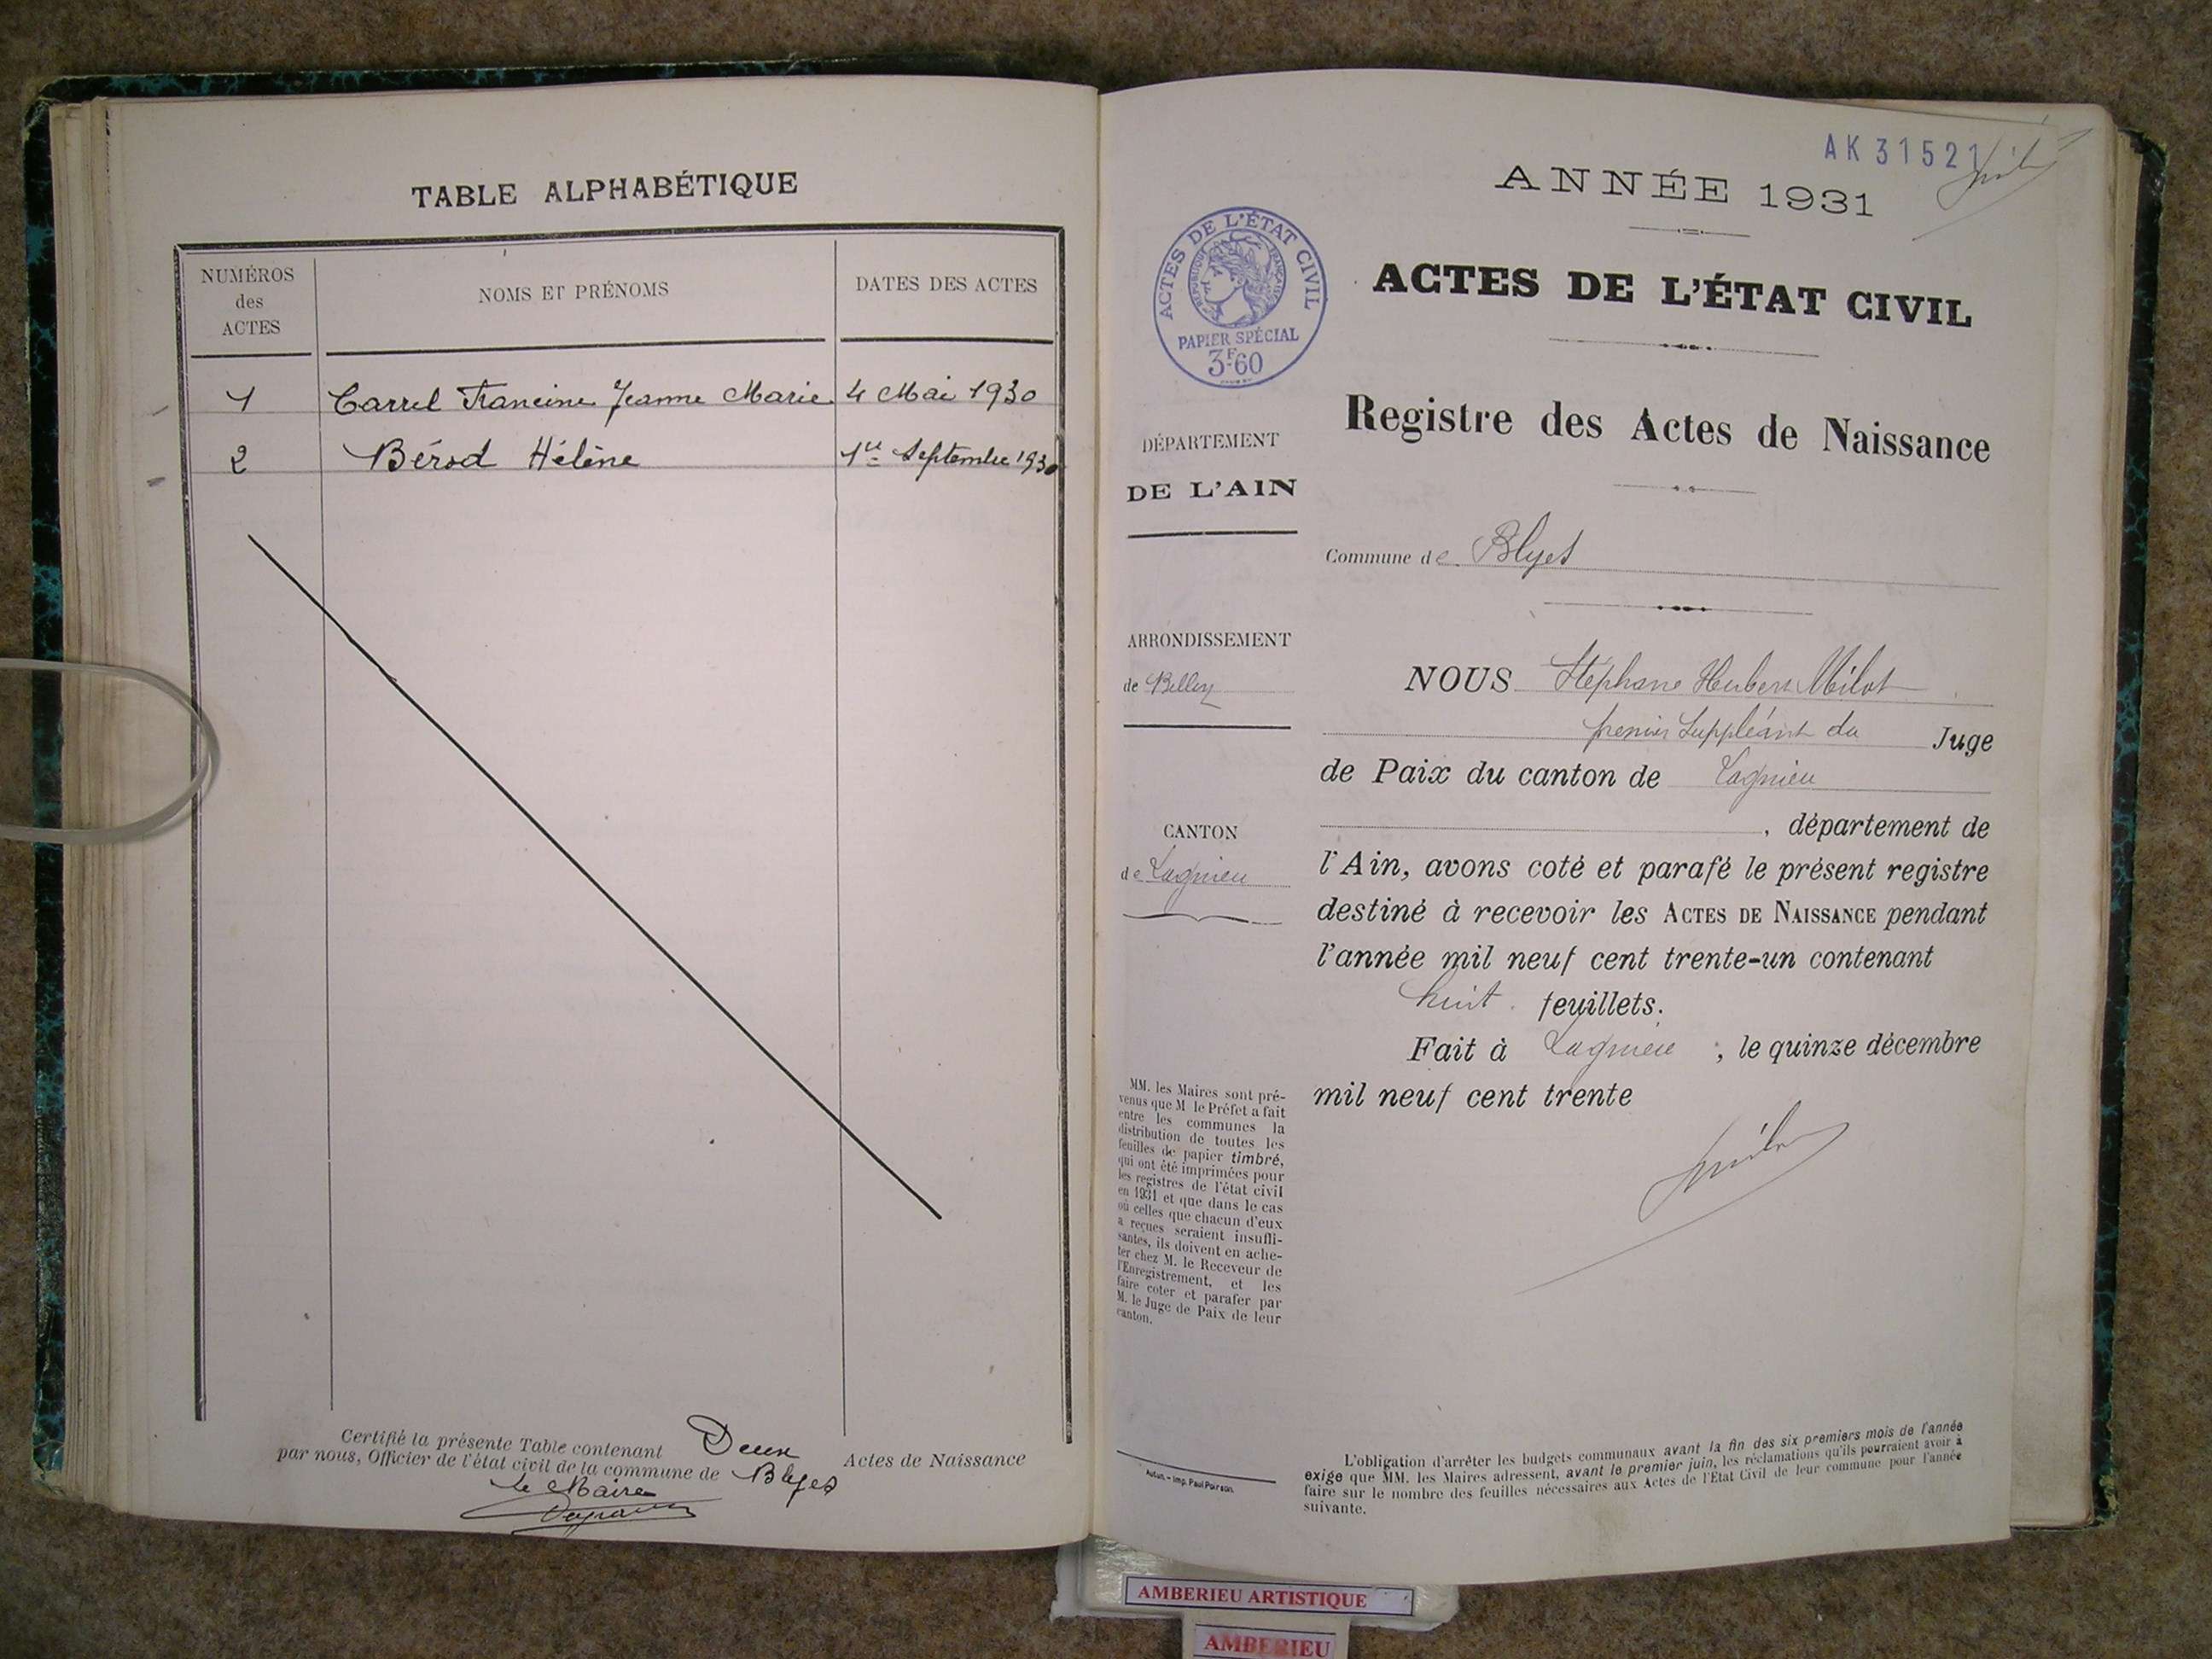 TABLE ALPHABÉTIQUE
NUMÉROS
des
ACTES
NOMS ET PRÉNOMS
DATES DES ACTES
1 Carrel Francine Jeanne Marie 4 Mai 1930
2 Bérod Hélène 1er Septembre 1930
Certifié la présente Table contenant Deux Actes de Naissance
par nous, Officier de l'état civil de la commune de Blyes
Le Maire
AK 31521
ANNÉE 1931
ACTES DE L'ÉTAT CIVIL
RÉPUBLIQUE FRANÇAISE
PAPIER SPÉCIAL
3F60
ACTES DE L'ÉTAT CIVIL
Registre des Actes de Naissance
DÉPARTEMENT
DE L'AIN
Commune de Blyes
ARRONDISSEMENT
de Belley
CANTON
de Lagnieu
NOUS Stéphane Hubert Milot
premier Suppléant du Juge
de Paix du canton de Lagnieu
, département de
l'Ain, avons coté et parafé le présent registre
destiné à recevoir les ACTES DE NAISSANCE pendant
l'année mil neuf cent trente-un contenant
huit feuillets.
Fait à Lagnieu, le quinze décembre
mil neuf cent trente
MM. les Maires sont pré-
venus que M le Préfet a fait
entre les communes la
distribution de toutes les
feuilles de papier timbré,
qui ont été imprimées pour
les registres de l'état civil
en 1931 et que dans le cas
où celles que chacun d'eux
a reçues seraient insuffi-
santes, ils doivent en ache-
ter chez M. le Receveur de
l'Enregistrement, et les
faire coter et parafer par
M. le Juge de Paix de leur
canton.
Autun. – Imp. Paul Poirson.
L'obligation d'arrêter les budgets communaux avant la fin des six premiers mois de l'année
exige que MM. les Maires adressent, avant le premier juin, les réclamations qu'ils pourraient avoir à
faire sur le nombre des feuilles nécessaires aux Actes de l'Etat Civil de leur commune pour l'année
suivante.
AMBERIEU ARTISTIQUE
AMBERIEU